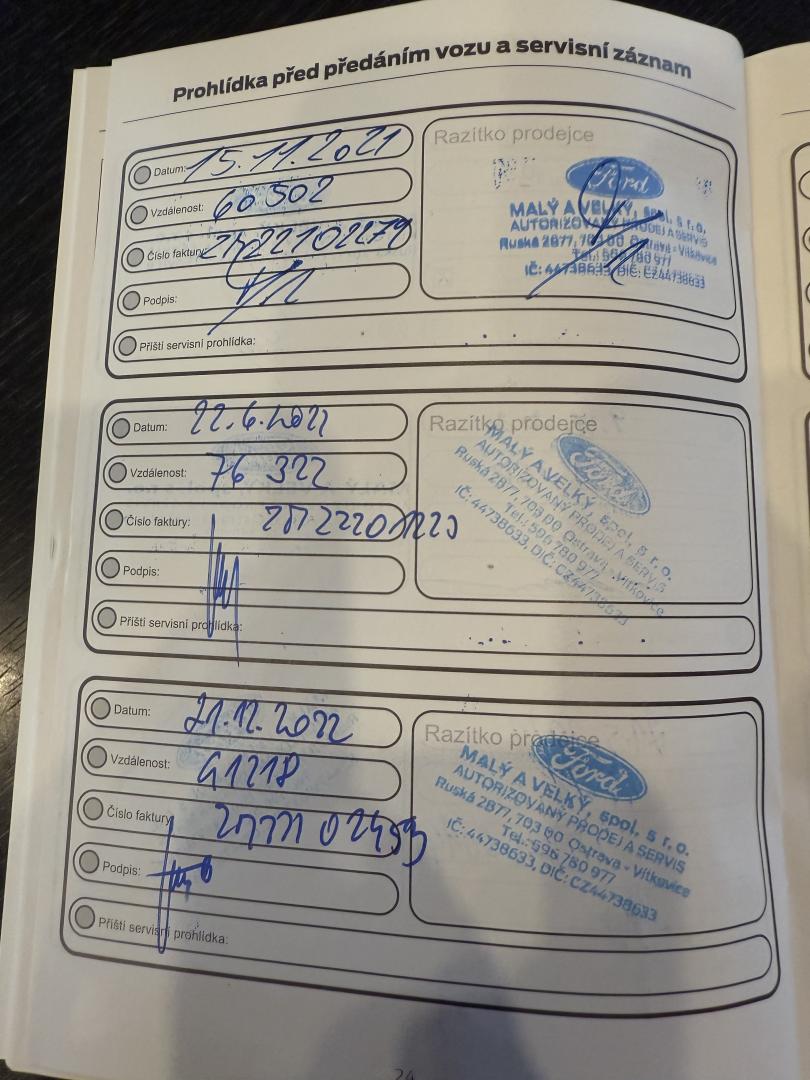 Prohlídka před předáním vozu a servisní záznam
Datum: 15.11.2021
Vzdálenost: 60 502
Číslo faktury:
Podpis:
Příští servisní prohlídka:
Razítko prodejce
Ford
MALÝ A VELKÝ, spol. s r.o.
AUTORIZOVANÝ PRODEJ A SERVIS
Ruská 2877, 703 00 Ostrava - Vítkovice
Tel.: 596 780 977
IČ: 44738633, DIČ: CZ44738633
Datum: 22.6.2022
Vzdálenost: 76 322
Číslo faktury:
Podpis:
Příští servisní prohlídka:
Razítko prodejce
Ford
MALÝ A VELKÝ, spol. s r.o.
AUTORIZOVANÝ PRODEJ A SERVIS
Ruská 2877, 703 00 Ostrava - Vítkovice
Tel.: 596 780 977
IČ: 44738633, DIČ: CZ44738633
Datum: 21.12.2022
Vzdálenost: 91218
Číslo faktury
Podpis:
Příští servisní prohlídka:
Razítko prodejce
Ford
MALÝ A VELKÝ, spol. s r.o.
AUTORIZOVANÝ PRODEJ A SERVIS
Ruská 2877, 703 00 Ostrava - Vítkovice
Tel.: 596 780 977
IČ: 44738633, DIČ: CZ44738633